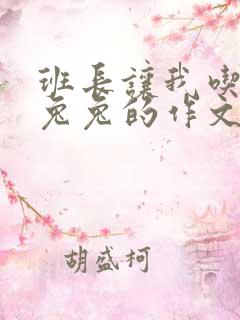 班長讓我喫
兔兔的作文
胡盛柯